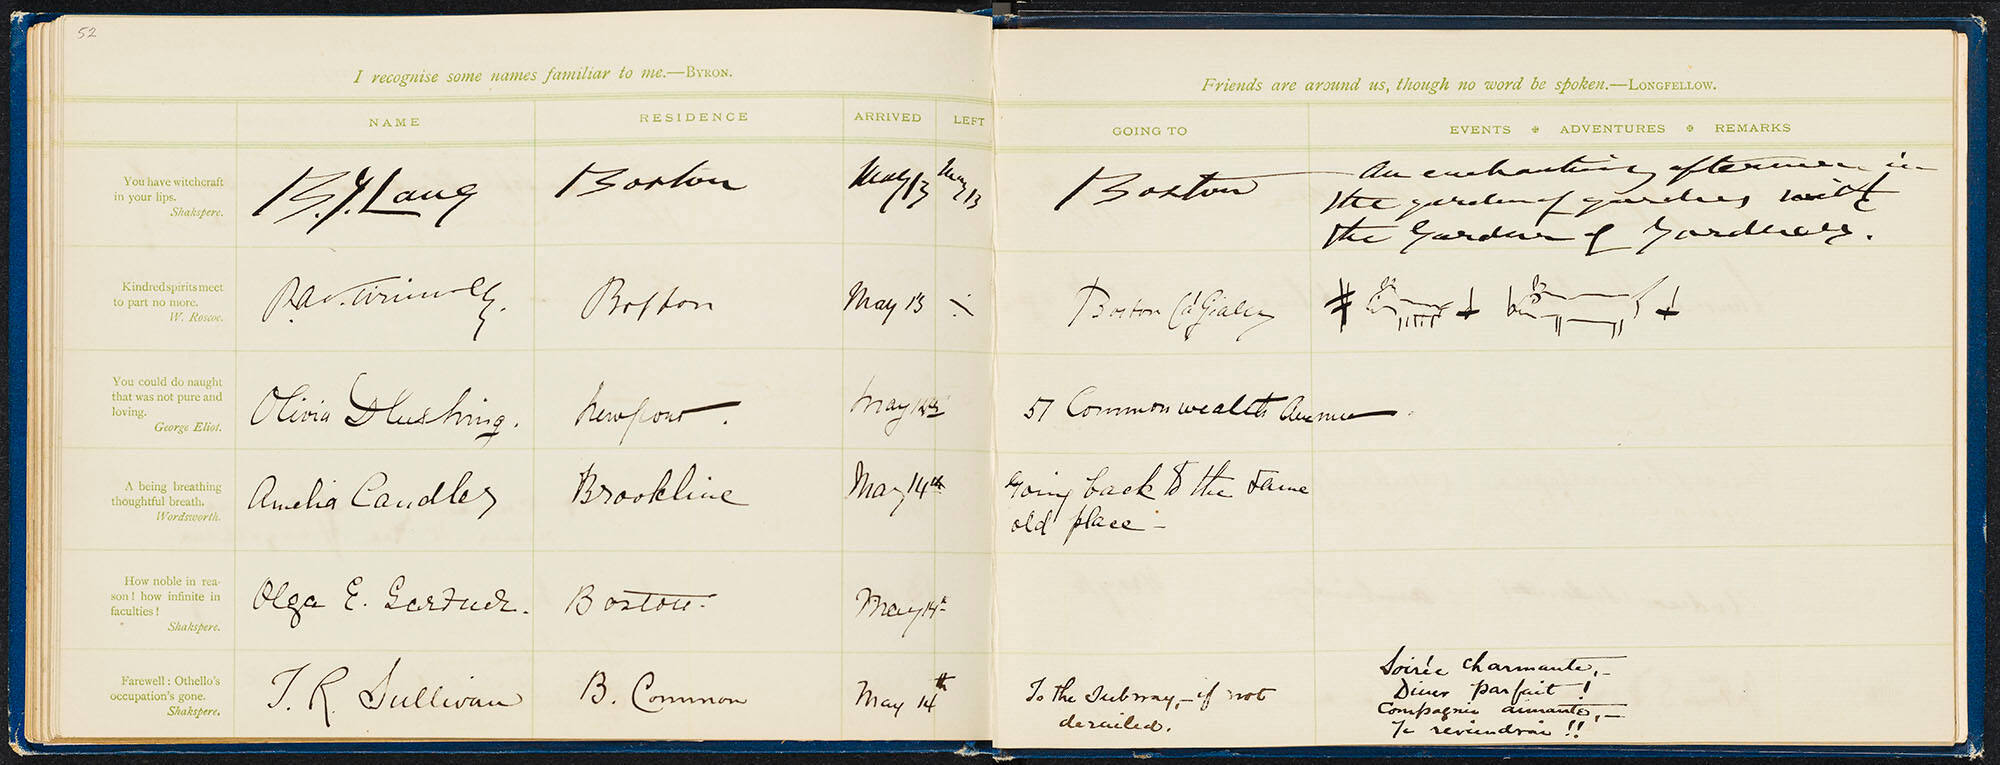 52
I recognise some names familiar to me.—BYRON.
NAME RESIDENCE ARRIVED LEFT
You have witchcraft
in your lips.
Shakspere.
B.J. Lang Boston May 13 May 13
Kindred spirits meet
to part no more.
W. Roscoe.
Boston May 13
You could do naught
that was not pure and
loving.
George Eliot.
Olivia D Cushing. Newport. May 14th
A being breathing
thoughtful breath.
Wordsworth.
Amelia Candler Brookline May 14th
How noble in rea-
son! how infinite in
faculties!
Shakspere.
Olga E. Gardner. Boston. May 14th
Farewell: Othello's
occupation's gone.
Shakspere.
T. R. Sullivan B. Common May 14th
Friends are around us, though no word be spoken.—LONGFELLOW.
GOING TO EVENTS ADVENTURES REMARKS
Boston An enchanting afternoon in
the garden of gardens with
the Gardner of Gardners.
Boston
51 Commonwealth Avenue
Going back to the same
old place —
To the Subway,—if not
derailed.
Soirée charmante,—
Diner parfait!
Compagnie aimante,—
Je reviendrai!!